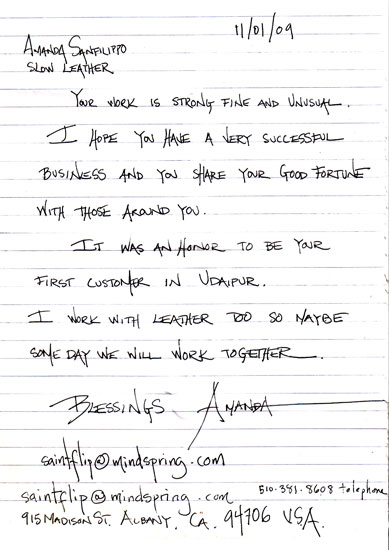 11/01/09
AMANDA SANFILIPPO
SLOW LEATHER
YOUR WORK IS STRONG FINE AND UNUSUAL.
I HOPE YOU HAVE A VERY SUCCESSFUL
BUSINESS AND YOU SHARE YOUR GOOD FORTUNE
WITH THOSE AROUND YOU.
IT WAS AN HONOR TO BE YOUR
FIRST CUSTOMER IN UDAIPUR.
I WORK WITH LEATHER TOO SO MAYBE
SOME DAY WE WILL WORK TOGETHER.
BLESSINGS AMANDA
saintflip@mindspring.com
saintflip@mindspring.com 510-381-8608 telephone
915 MADISON ST. ALBANY, CA. 94706 USA.